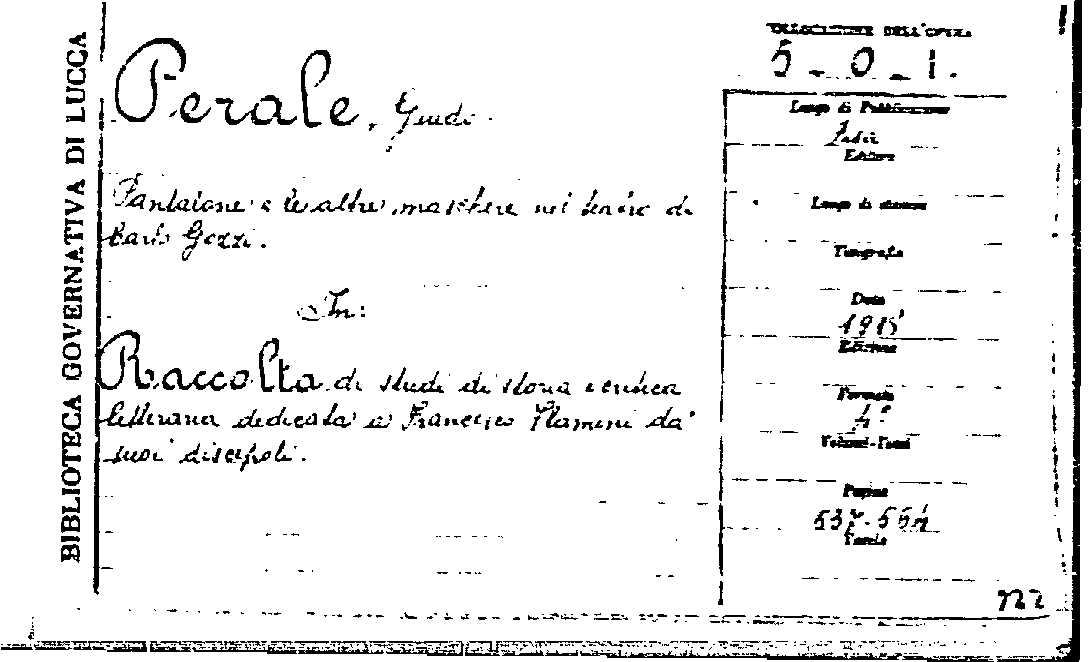 BIBLIOTECA GOVERNATIVA DI LUCCA
COLLOCAZIONE DELL'OPERA
5-0-1.
Perale, Guido.
Pantalone e le altre maschere nel teatro di
Carlo Gozzi.
In:
Raccolta di studi di storia e critica
letteraria dedicata a Francesco Flamini da'
suoi discepoli.
Luogo di Pubblicazione
Editore
Luogo di stampa
Tipografia
Data
1915
Edizione
Formato
4°
Volumi-Tomi
Pagine
537-554
Tavole